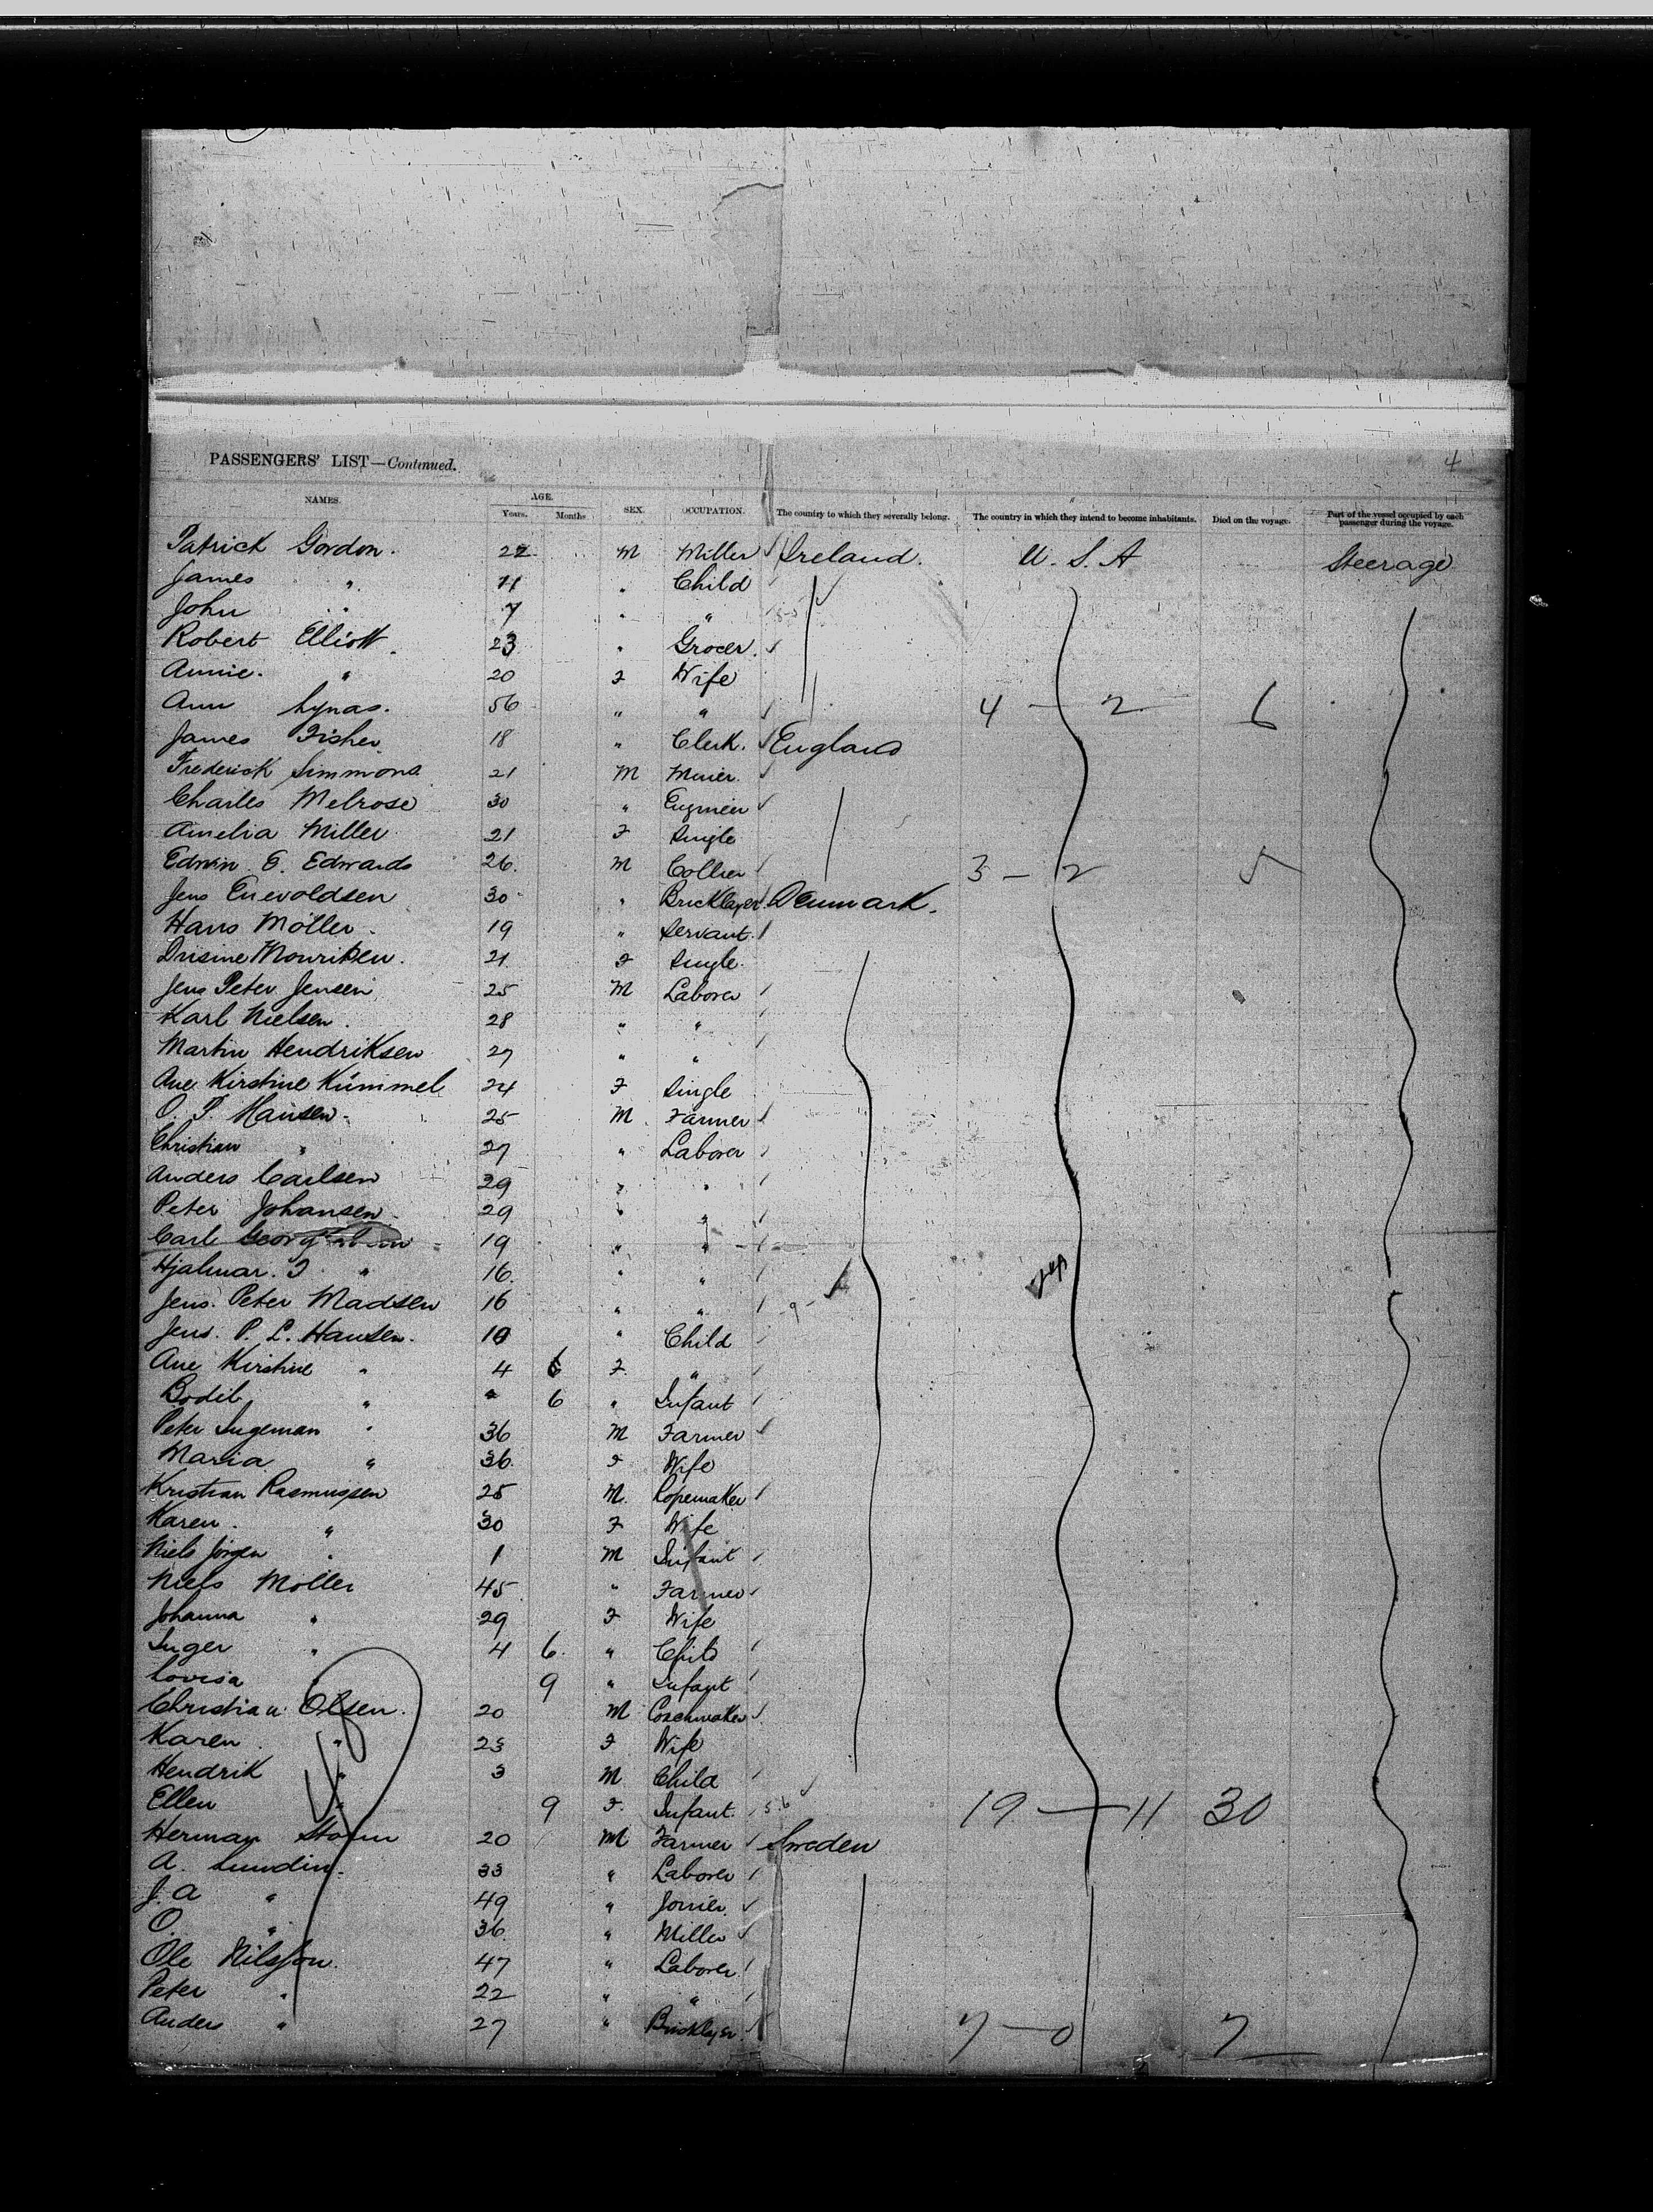 4
PASSENGERS' LIST—Continued.
NAMES. AGE. Years. Months SEX. OCCUPATION. The country to which they severally belong. The country in which they intend to become inhabitants. Died on the voyage. Part of the vessel occupied by each passenger during the voyage.
Patrick Gordon. 22 M Miller Ireland. U.S.A Steerage
James " 11 " Child
John " 7 " "
Robert Elliott. 23 " Grocer.
Annie. " 20 F Wife
Ann Lynas. 56 " " 4 — 2 6
James Fisher 18 " Clerk. England
Frederick Simmons 21 M Miner.
Charles Melrose 30 " Engineer
Amelia Miller 21 F Single
Edwin G. Edwards 26. M Collier 3 — 2 5
Jens Enevoldsen 30 " Bricklayer Denmark.
Hans Möller. 19 " Servant.
21 F Single.
Jens Peter Jensen 25 M Laborer
Karl Nielsen. 28 " "
Martin Hendriksen 27 " "
Ane Kirstine Kümmel 24 F Single
O. P. Hansen. 25 M. Farmer
Christian " 27 " Laborer
Anders Carlsen 29 " "
Peter Johansen 29 " "
Carl Georg 19 " "
Hjalmar. " 16. " "
Jens. Peter Madsen 16 " "
Jens. P. L. Hansen. 10 " Child
Ane Kirstine " 4 6 F. "
Bodil " " 6 " Infant
Peter Ingeman " 36 M Farmer
Maria " 36. F Wife
Kristian Rasmussen 25 M. Ropemaker
Karen. " 30 F Wife
Niels Jörgen " 1 M Infant
Niels Möller 45 " Farmer
Johanna " 29 F Wife
Inger " 4 6. " Child
Lovisa 9 " Infant
Christian Olsen. 20 M Coachmaker
Karen. " 23 F Wife
Hendrik " 3 M Child
Ellen " 9 F. Infant. 19 — 11 30
Herman Storm 20 M Farmer Sweden
A. Lundin. 33 " Laborer
J. A " 49 " Joiner.
O. " 36. " Miller
Ole Nilsson. 47 " Laborer
Peter " 22 " "
Anders " 27 " Bricklayer. 7 — 0 7